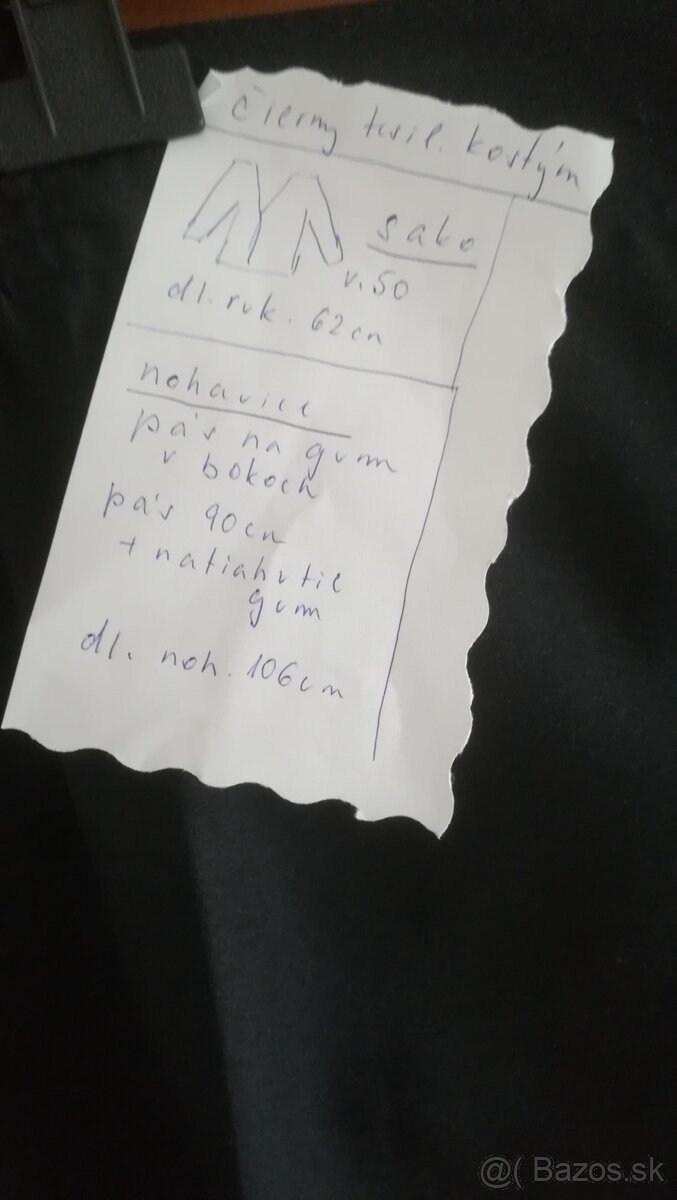 Čierny tesil. kostým
sako
v. 50
dl. ruk. 62 cm
nohavice
pás na gum
v bokoch
pás 90 cm
+ natiahutie
gum
dl. noh. 106 cm
@( Bazos.sk